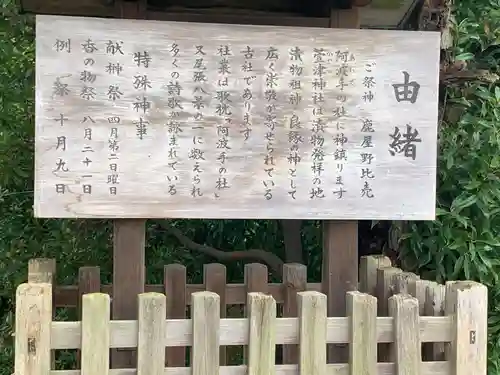 由緒
ご祭神 鹿屋野比売
阿波手の社に神鎮ります
萱津神社は漬物発祥の地
漬物祖神・良縁の神として
広く崇敬が寄せられている
古社であります
社叢は呼称「阿波手の社」
又尾張八景の一に数えられ
多くの詩歌が詠まれている
特殊神事
献榊祭 四月第二日曜日
香の物祭 八月二十一日
例祭 十月九日